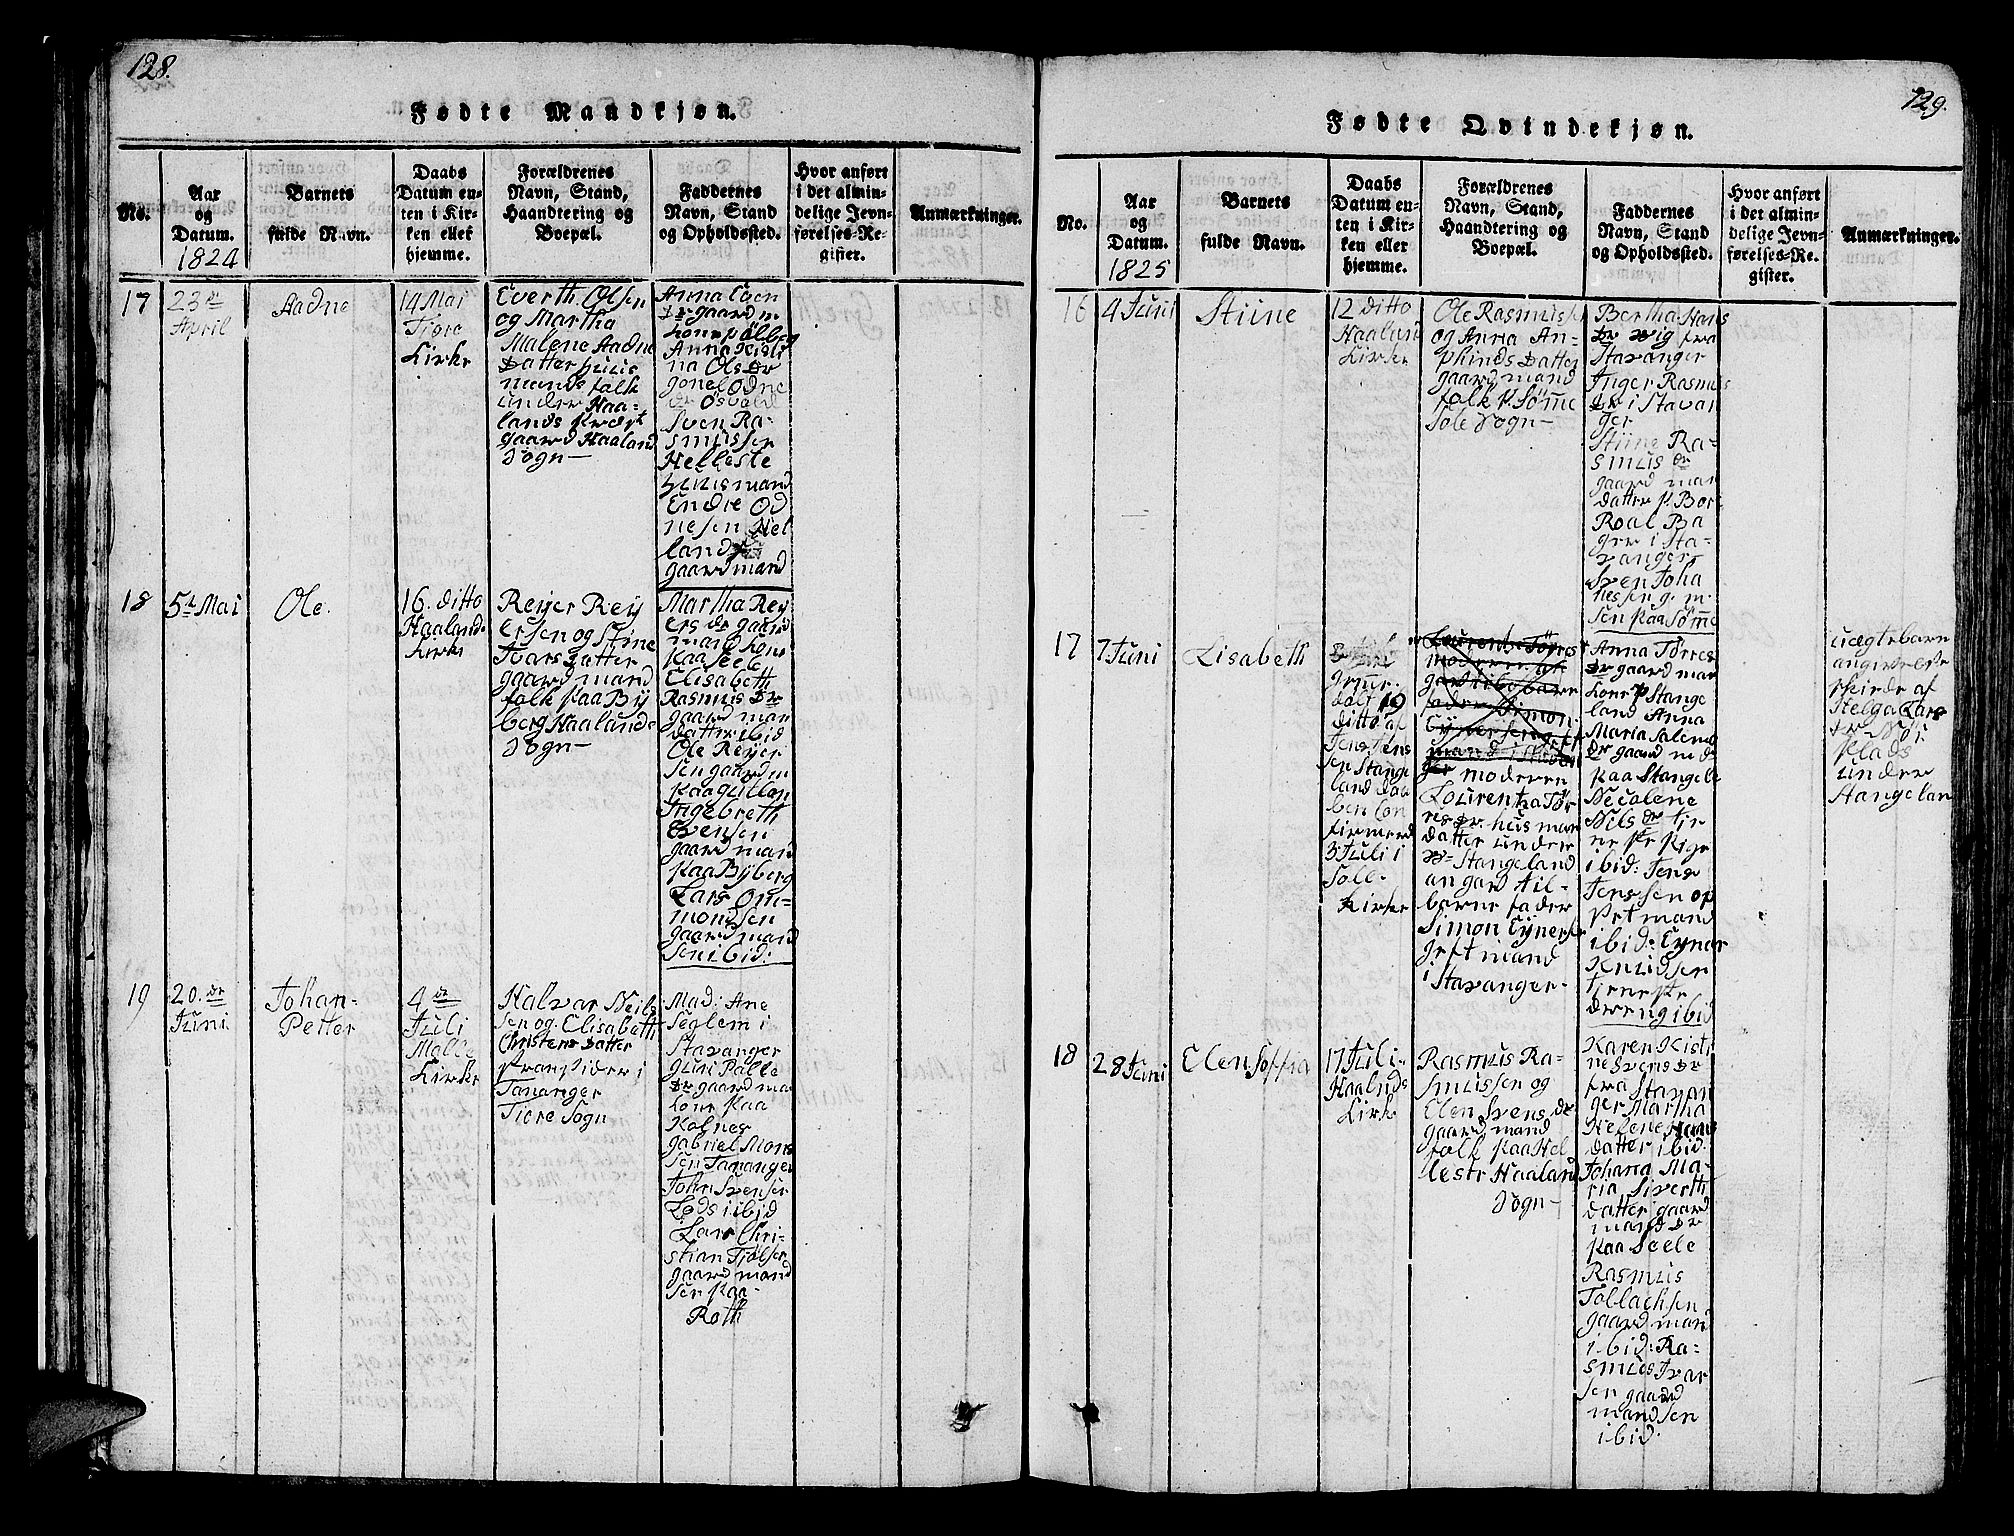 128.
Fødte Mandkjøn.
No.
Aar
og
Datum.
1824
Barnets
fulde Navn.
Daabs
Datum en-
ten i Kir-
ken eller
hjemme.
Forældrenes
Navn, Stand,
Haandtering og
Boepæl.
Faddernes
Navn, Stand
og Opholdssted.
Hvor anført
i det almin-
delige Jevn-
førelses-Re-
gister.
Anmærkninger.
17
23de
April
Aadne
14 Mai
Tiore
Kirke
Everth Olsen
og Martha
Malene Aadne
Datter huus
mands folk
under Haa-
lands Præst
gaard Haaland
Sogn-
Anna
Dr gaard m
kone
Anna Kisti
na Ols Dr
Sven Ra-
smussen
Helleste
huusmand
Endre Od
nesen Mel
land
gaardmand
18
5te Mai
Ole.
16. ditto
Haaland-
kirke
Reijer Reij
ersen og Stine
Ivars datter
gaard mand
folk paa Bÿ
berg Haalands
Sogn-
Martha Reij
ers dr gaard
mand kone
paa Seele
Elisabeth
Rasmus Dr
gaard man
datter ibid
Ole Reijer
sen gaard m
paa
Ingebreth
Svensen
gaard man
paa Bÿberg
Lars Om-
mondsen
gaard mand
sen ibid:
19
20. de
Juni
Johan-
Petter
4de
Juli
Malle
Kirke
Halvar Neils
sen og Elisabeth
Christens datter
strandsider i
Tananger
Tiore Sogn
Mad: Ane
Seglem i
Stavanger
Guri Palle
Dr gaard ma
kone paa
Kolnes
Gabriel Mons
sen Tananger
John Svensen
Lods i ibid
Lars Chri-
stian Tiølser
gaard mand
sen paa-
Roth
129.
Fødte Qvindekjøn.
No.
Aar
og
Datum.
1825
Barnets
fulde Navn.
Daabs
Datum en-
ten i Kir-
ken eller
hjemme.
Forældrenes
Navn, Stand,
Haandtering og
Boepæl.
Faddernes
Navn, Stand
og Opholdssted.
Hvor anført
i det almin-
delige Jevn-
førelses-Re-
gister.
Anmærkninger.
16
4 Juni
Stiine
12 ditto
Haaland
Kirke
Ole Rasmuss
og Anna An-
phinds Datter
gaard mand
folk p. Sømme
Sole Sogn-
Bertha Hans
Dr vig fra
Stavanger
Inger Rasmus
Dr i Stavan
ger
Stiine Ra-
smus dr
gaard man
datter p. Bor
Roal Ba
ger i Sta-
vanger
Sven Joha
nessen g. m.
sen paa Sømme
17
7 Juni
Lisabeth
døbt 19
ditto af
Jens Jens
sen Stange
land daa
ben con
firmerd
3 Juli i
Sole-
Kirke
Laurentse Tørres
moderen
fader Simon
mand i Stavan
ger moderen
Lourentza Tør
res dr. huus man
datter under
Stangeland
angav til-
barne fader
Simon Eÿnerse
gift mand
i Stavanger-
Anna Tørres
Dr gaard man
kone p Stange
land Anna
Maria Salemo
dr gaard md
paa Stangela
Necalene
Nils dr tie
neste Pige
ibid: Jens
Jenssen op
ibid: Eÿner
Knudsen
tieneste
dreng ibid
uægtebarn
angiveste
Helga Lars
dr
Plads
under
Stangelan
18
28 Juni
Elen Soffia
17 Juli-
Haalands
Kirke
Rasmus Ra-
smussen og
Elen Svens dr
gaard mand
folk paa Hel
lestr Haaland
Sogn-
Karen Kisti
ne Svens dr
fra Stavan
ger Martha
Helene Hans
datter ibid.
Johana Ma-
ria Siverth
datter gaard
mand dr
paa Seele
Rasmus
Tollachsen
gaard man
ibid: Ra-
smus Ivar
sen gaard
mandsen
ibid.